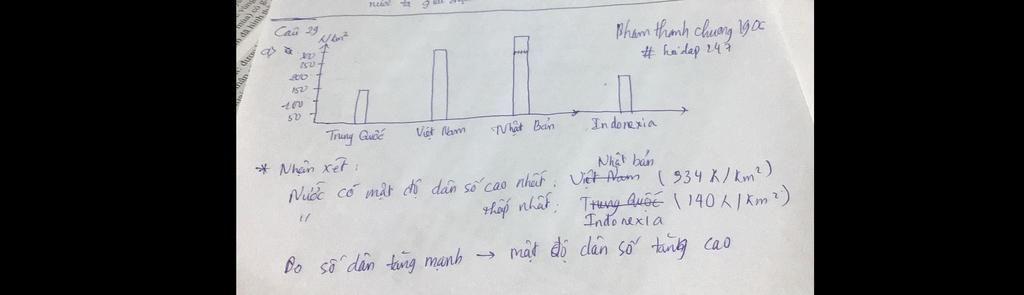 nước ta
Câu 29
N/km²
Phạm thanh chương 19DC
# hoidap247
a)
300
250
200
150
100
50
Trung Quốc
Việt Nam
Nhật Bản
Indonexia
* Nhận xét:
Nhật bản
Nước có mật độ dân số cao nhất: Việt Nam (334 N/km²)
" thấp nhất: Trung Quốc (140 N/km²)
Indonexia
Do số dân tăng mạnh → mật độ dân số tăng cao